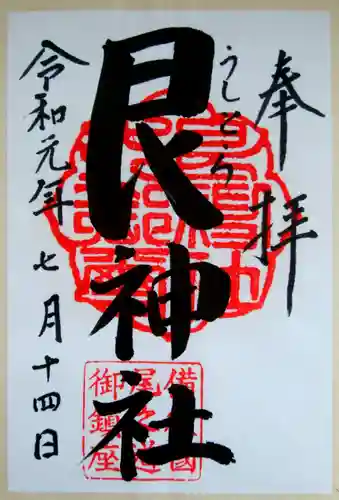 奉拝
うしとら
艮神社
令和元年七月十四日
備国
尾之道
御鎮座